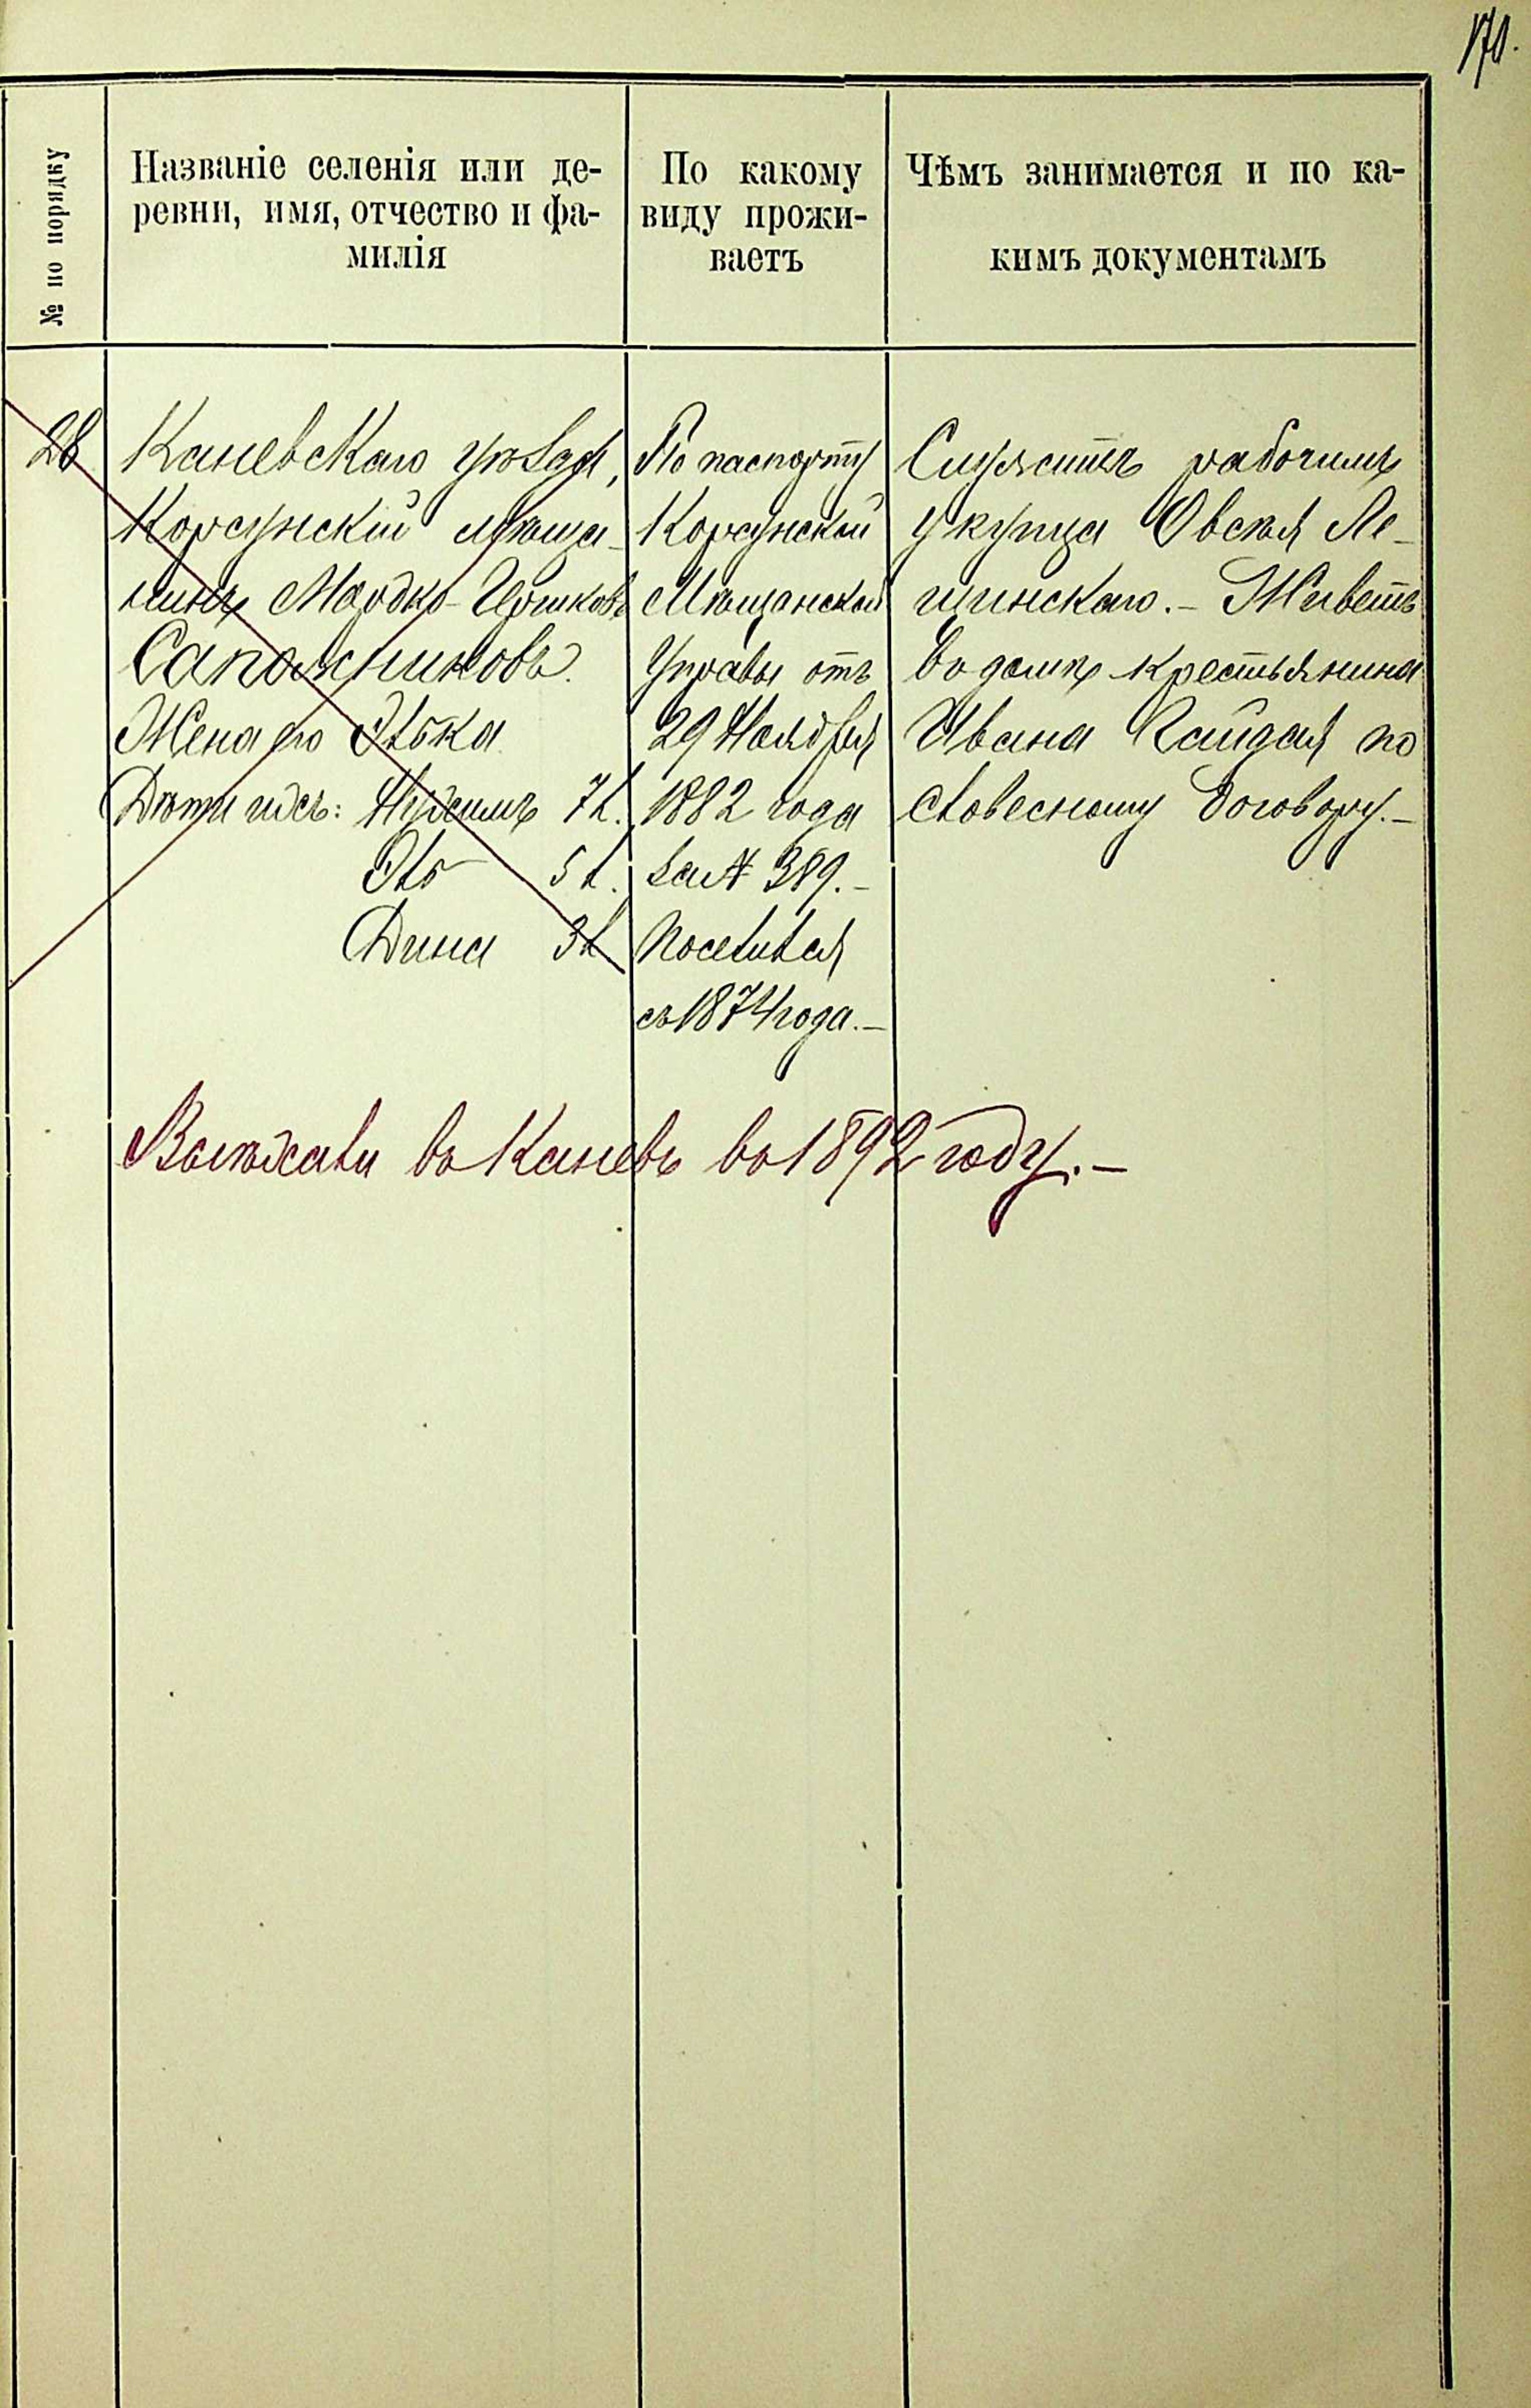 170.
№ по порядку
Названіе селенія или де-
ревни, имя, отчество и фа-
милія
По какому
виду прожи-
ваетъ
Чѣмъ занимается и по ка-
кимъ документамъ
28
Каневскаго уѣзда,
Корсунскій мѣща-
нинъ Мордко Иршковъ
Сапожниковъ.
Жена его Элька
Дѣти ихъ: Нухимъ 7 л.
Эль 5 л.
Дина 3 л
По паспорту
Корсунской
Мѣщанской
Управы отъ
29 Ноября
1882 года
за № 389.-
Поселился
съ 1874 года.-
Служитъ рабочимъ
у купца Овсѣя Ле-
щинскаго.- Живетъ
въ домѣ крестьянина
Ивана Гайдая по
словесному договору.-
Выѣхали въ Каневъ въ 1892 году.-